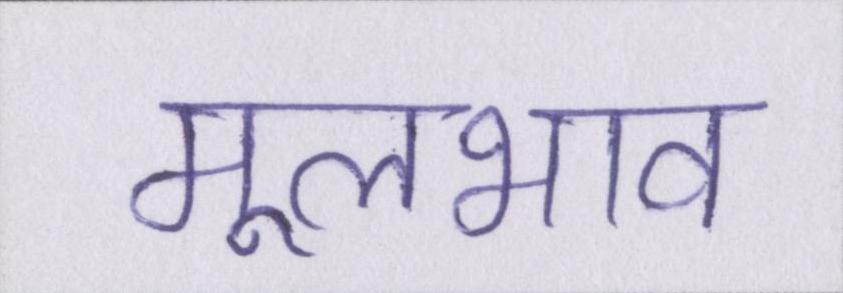 मूलभाव